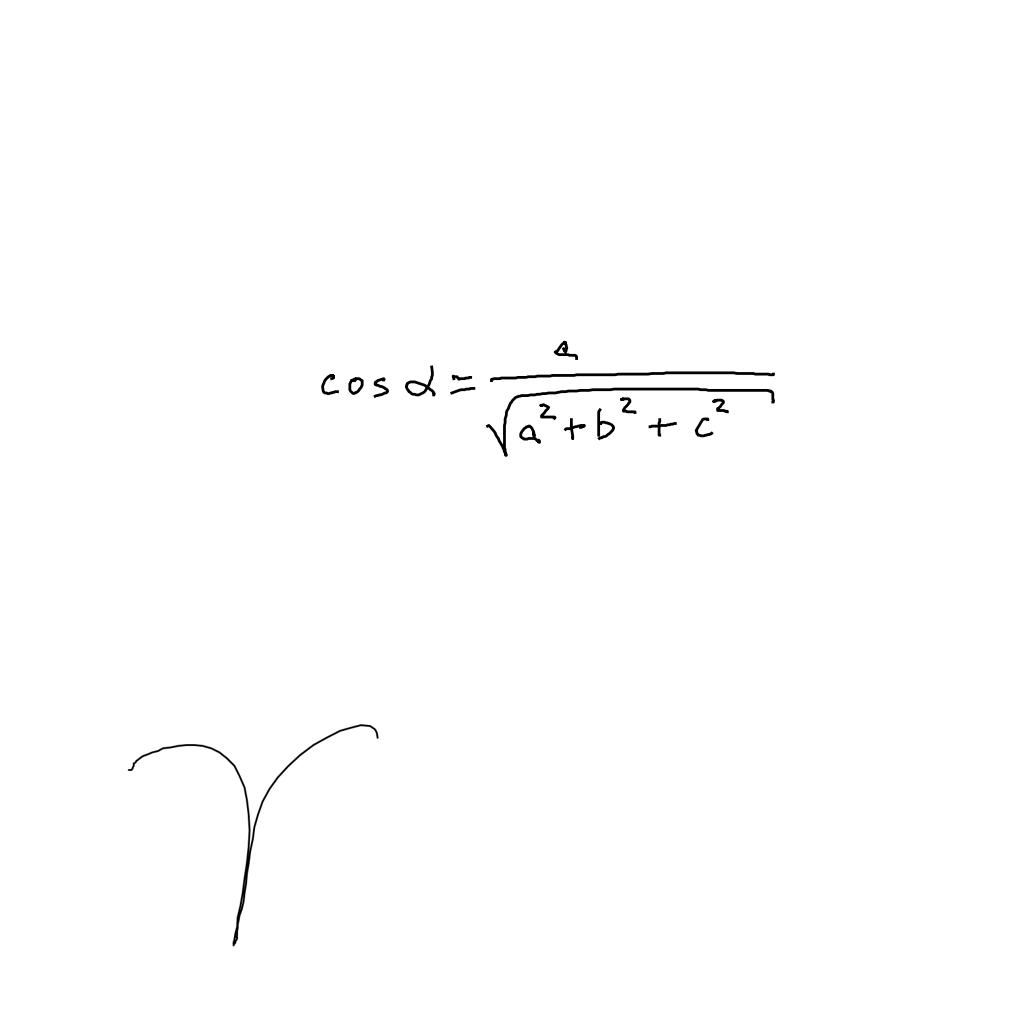 cos α = a / √(a² + b² + c²)
ϒ